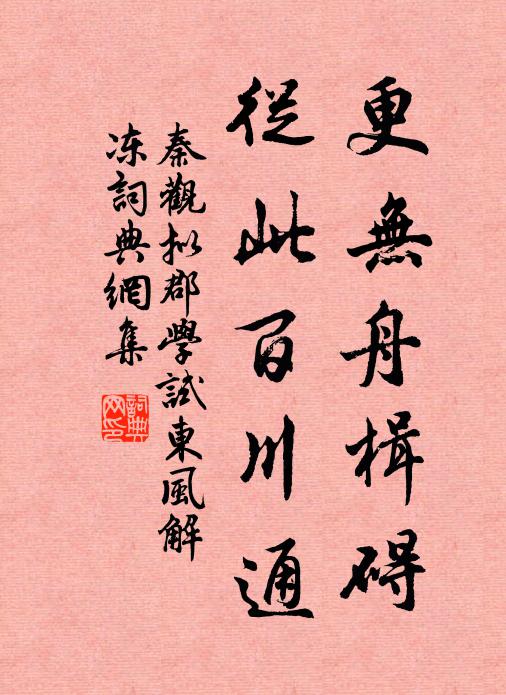 更無舟楫碍
從此百川通
秦觀拟郡學試東風解
冻詞典網集
詞典网印